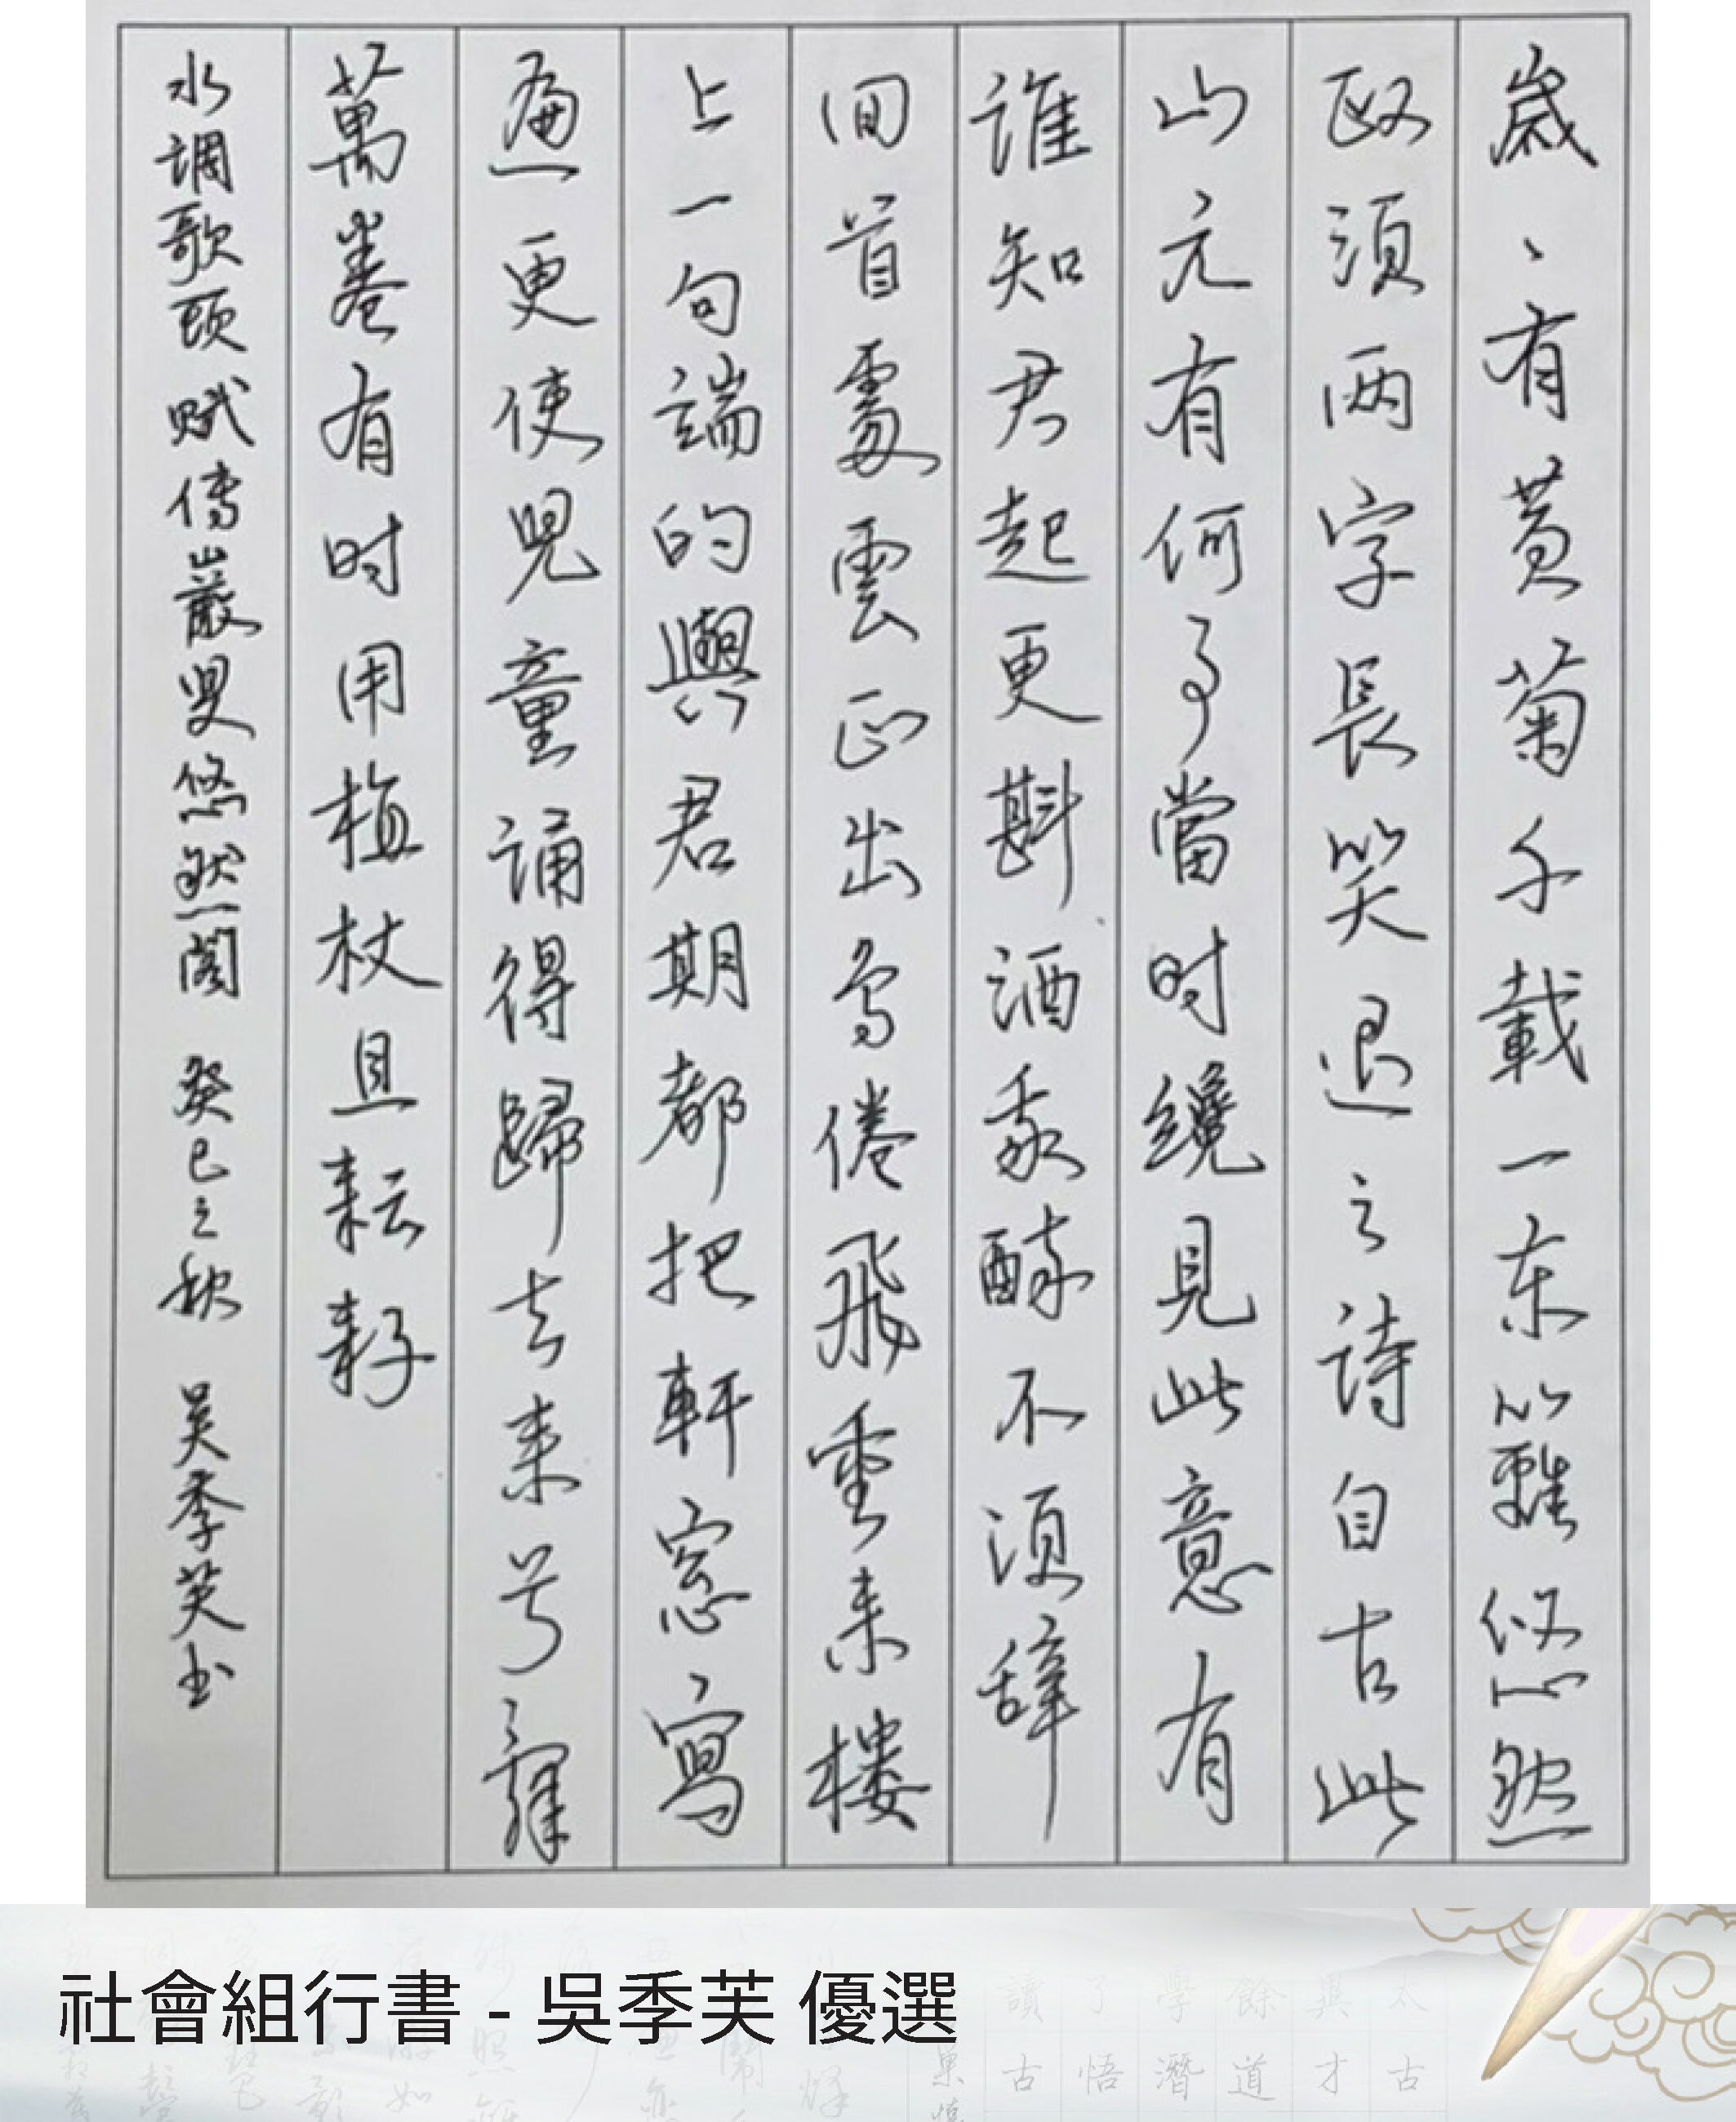 歲、有黃菊千載一東籬悠然
政須兩字長笑退之詩自古此
山元有何事當时纔見此意有
誰知君起更斟酒我醉不須辭
回首處雲正出鳥倦飛重來樓
上一句端的與君期都把軒窓寫
遍更使兒童誦得歸去来兮辭
萬卷有时用植杖且耘耔
水調歌頭賦傅巖叟悠然閣 癸巳之秋 吳季芙书
社會組行書 - 吳季芙 優選